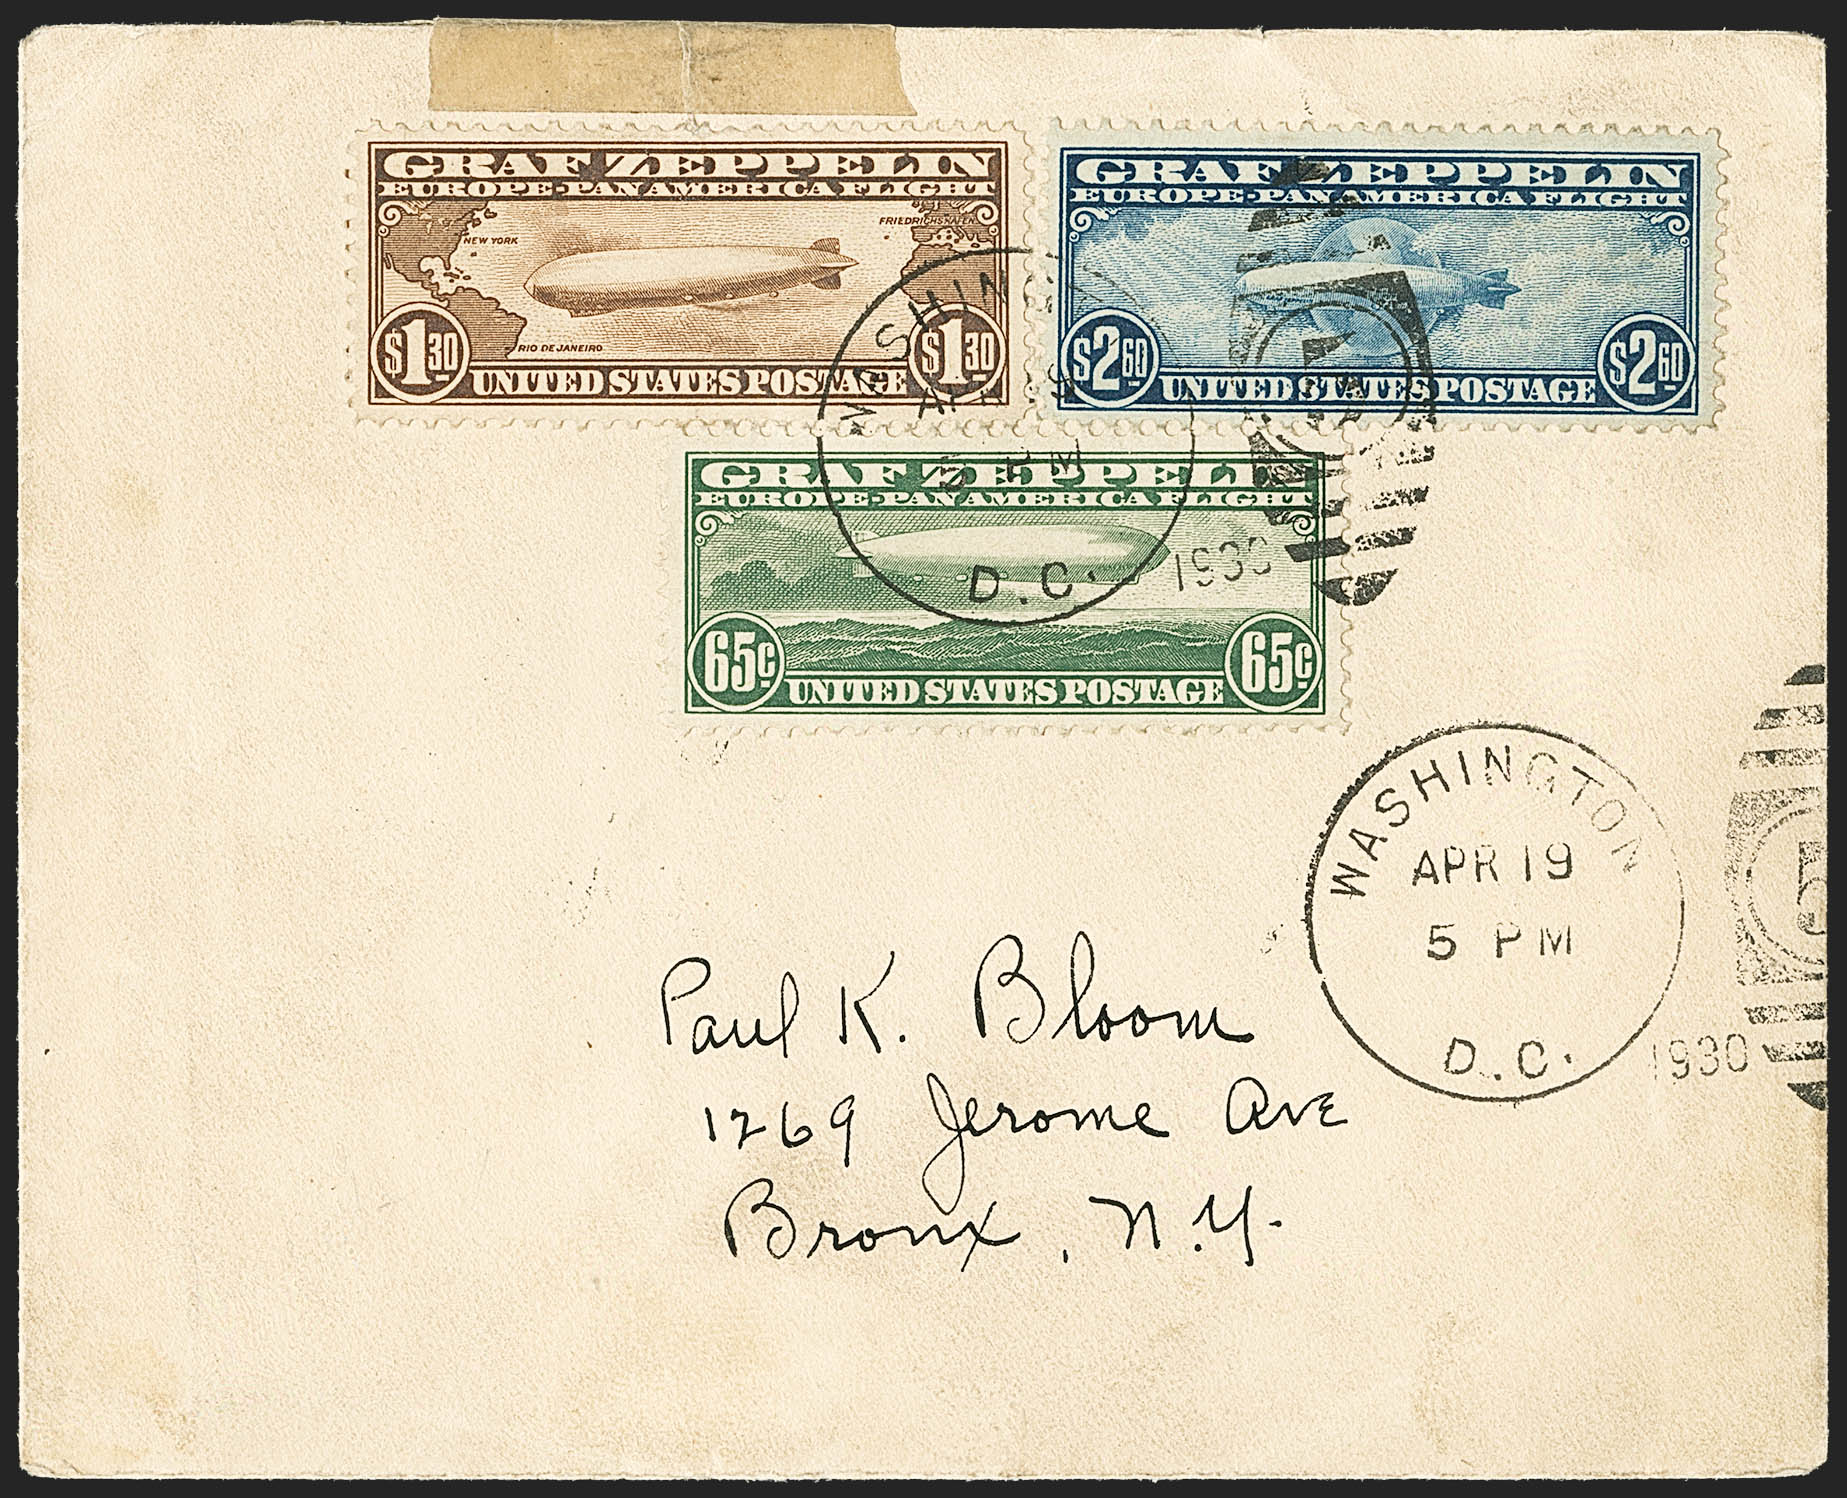 GRAF ZEPPELIN
EUROPE-PAN AMERICA FLIGHT
NEW YORK
FRIEDRICHSHAFEN
RIO DE JANEIRO
$1.30
$1.30
UNITED STATES POSTAGE
GRAF ZEPPELIN
EUROPE-PAN AMERICA FLIGHT
$2.60
$2.60
UNITED STATES POSTAGE
WASHIN
5 PM
D.C.
1930
GRAF ZEPPELIN
EUROPE-PAN AMERICA FLIGHT
65¢
65¢
UNITED STATES POSTAGE
WASHINGTON
APR 19
5 PM
D.C.
1930
5
Paul K. Bloom
1269 Jerome Ave
Bronx, N.Y.